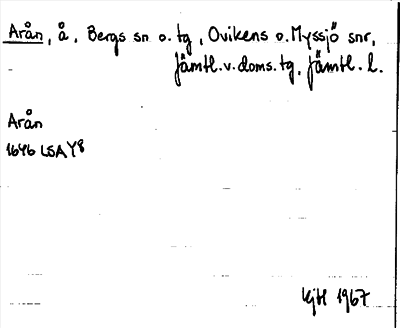 Arån, å, Bergs sn o. tg, Ovikens o. Myssjö snr,
Jämtl. v. doms. tg, Jämtl. l.
Arån
1646 LSA Y8
Kjtl 1967